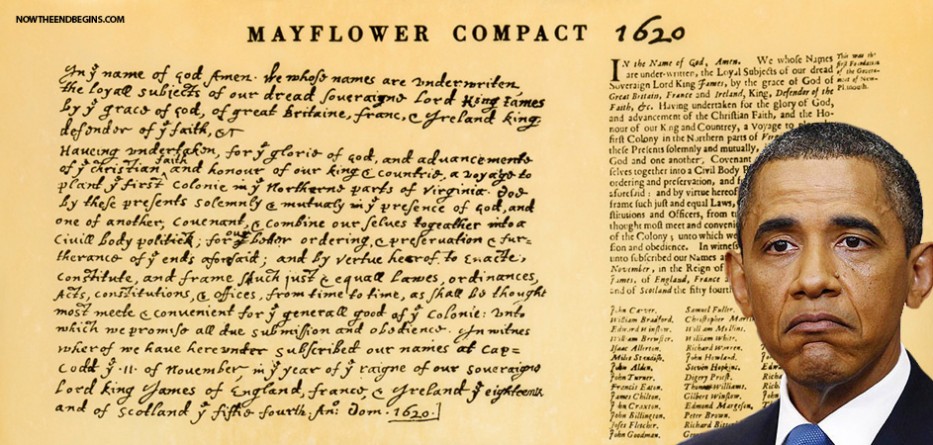 NOWTHEENDBEGINS.COM
MAYFLOWER COMPACT 1620
In yͤ name of God Amen. We whose names are vnderwriten,
the loyall subiects of our dread soveraigne Lord King James
by yͤ grace of God, of great Britaine, franc, & Ireland king,
defender of yͤ faith, &c
Haveing vndertaken, for yͤ glorie of God, and advancemente
of yͤ christian faith and honour of our king & countrie, a voyage to
plant yͤ first colonie in yͤ Northerne parts of Virginia. Doe
by these presents solemnly & mutualy in yͤ presence of God, and
one of another, covenant, & combine our selves togeather into a
Civill body politick; for our better ordering, & preservation & fur=
therance of yͤ ends aforesaid; and by vertue hearof to Enacte,
constitute, and frame shuch just & equall Lawes, ordinances,
Acts, constitutions, & offices, from time to time, as shall be thought
most meete & convenient for yͤ generall good of yͤ Colonie: vnto
which we promise all due submission and obedience. In witnes
wherof we have hereunder subscribed our names at Cap=
Codd yͤ .11. of November, in yͤ year of yͤ raigne of our soveraigne
Lord king James of England, france, & Ireland yͤ eighteene
and of Scotland yͤ fiftie fourth. An: Dom. 1620.
IN the Name of God, Amen. We whose Names
are under-written, the Loyal Subjects of our dread
Sovereign Lord King James, by the grace of God of
Great Britain, France and Ireland, King, Defender of the
Faith, &c. Having undertaken for the glory of God,
and advancement of the Christian Faith, and the Ho-
nour of our King and Countrey, a Voyage to
first Colony in the Northern parts of
these Presents solemnly and mutually,
God and one another, Covenant
selves together into a Civil Body
ordering and preservation, and
aforesaid: and by virtue hereof
frame such just and equal Laws,
stitutions and Officers, from
thought most meet and
of the Colony; unto which
sion and obedience. In
unto subscribed our Names
November, in the Reign of
James, of England, France
and of Scotland the fifty
This was the
first Foundation
of the
John Carver.
William Bradford.
Edward Winslow.
William Brewster.
Isaac Allerton.
Miles Standish.
John Alden.
John Turner.
Francis Eaton.
James Chilton.
John Craxton.
John Billington.
Joses Fletcher.
John Goodman.
Samuel Fuller.
Christopher
William Mullins.
William White.
Richard Warren.
John Howland.
Steven Hopkins.
Digery Priest.
Thomas Williams.
Gilbert Winslow.
Edmond Margeson.
Peter Brown.
Richard